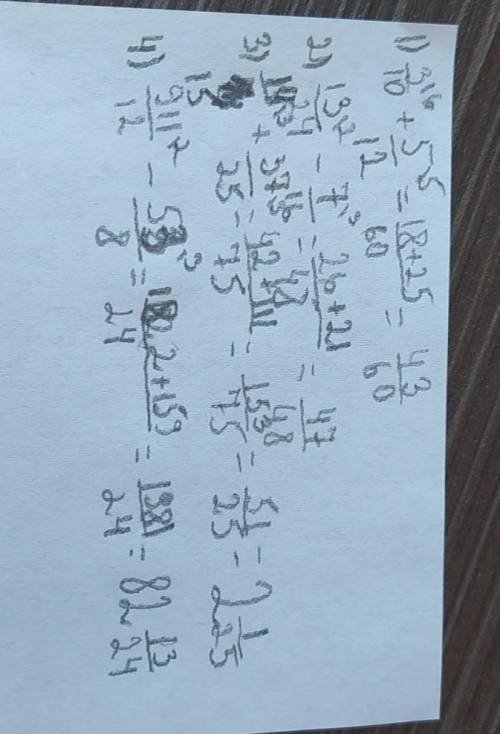 1) 3/10 ⁶ + 5/12 ⁵ = 18+25/60 = 43/60
2) 13/24 ² - 7/16 ³ = 26+21/48 = 47/48
3) 14/15 + 37/25 ³ = 42+111/75 = 153/75 = 51/25 = 2 1/25
4) 911/12 ² - 53/8 ³ = 2+159/24 = 1981/24 = 82 13/24